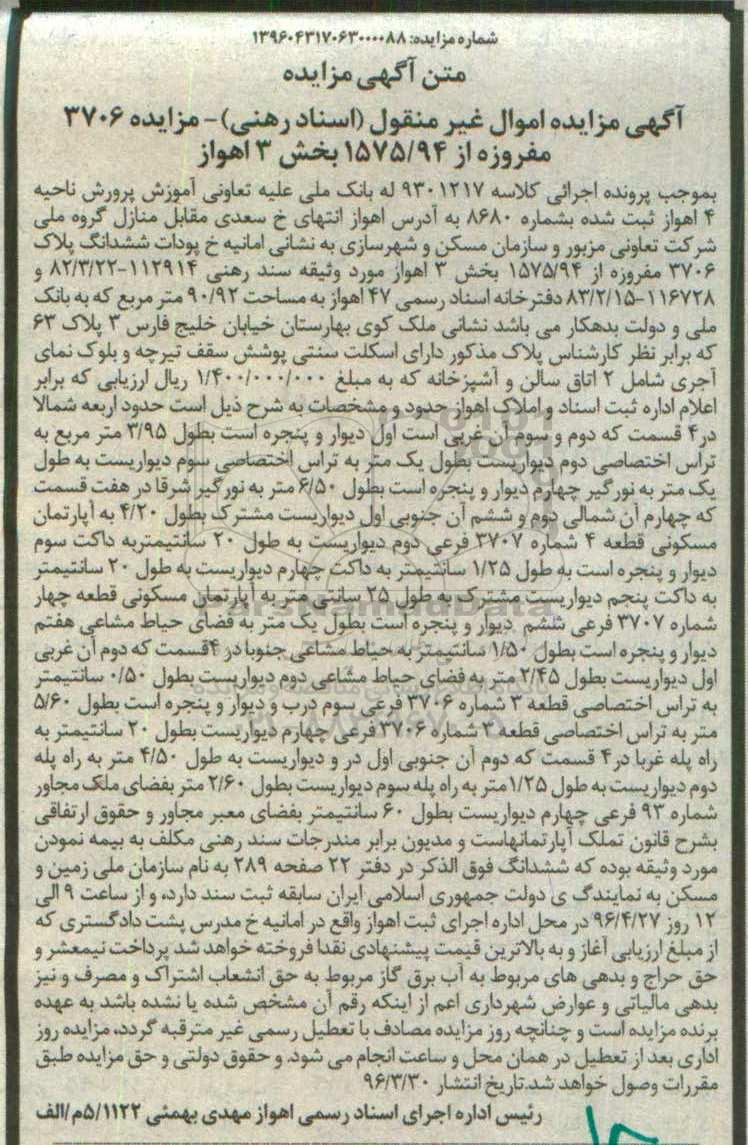 شماره مزایده: ۱۳۹۶۰۴۳۱۷۰۶۳۰۰۰۰۸۸
متن آگهی مزایده
آگهی مزایده اموال غیر منقول (اسناد رهنی) - مزایده ۳۷۰۶
مفروزه از ۱۵۷۵/۹۴ بخش ۳ اهواز
بموجب پرونده اجرائی کلاسه ۹۳۰۱۲۱۷ له بانک ملی علیه تعاونی آموزش پرورش ناحیه
۴ اهواز ثبت شده بشماره ۸۶۸۰ به آدرس اهواز انتهای خ سعدی مقابل منازل گروه ملی
شرکت تعاونی مزبور و سازمان مسکن و شهرسازی به نشانی امانیه خ پودات ششدانگ پلاک
۳۷۰۶ مفروزه از ۱۵۷۵/۹۴ بخش ۳ اهواز مورد وثیقه سند رهنی ۱۱۲۹۱۴-۸۲/۳/۲۲ و
۱۱۶۷۲۸-۸۳/۲/۱۵ دفترخانه اسناد رسمی ۴۷ اهواز به مساحت ۹۰/۹۲ متر مربع که به بانک
ملی و دولت بدهکار می باشد نشانی ملک کوی بهارستان خیابان خلیج فارس ۳ پلاک ۶۳
که برابر نظر کارشناس پلاک مذکور دارای اسکلت سنتی پوشش سقف تیرچه و بلوک نمای
آجری شامل ۲ اتاق سالن و آشپزخانه که به مبلغ ۱/۴۰۰/۰۰۰/۰۰۰ ریال ارزیابی که برابر
اعلام اداره ثبت اسناد و املاک اهواز حدود و مشخصات به شرح ذیل است حدود اربعه شمالا
در۴ قسمت که دوم و سوم آن غربی است اول دیوار و پنجره است بطول ۳/۹۵ متر مربع به
تراس اختصاصی دوم دیواریست بطول یک متر به تراس اختصاصی سوم دیواریست به طول
یک متر به نورگیر چهارم دیوار و پنجره است بطول ۶/۵۰ متر به نورگیر شرقا در هفت قسمت
که چهارم آن شمالی دوم و ششم آن جنوبی اول دیواریست مشترک بطول ۴/۲۰ به آپارتمان
مسکونی قطعه ۴ شماره ۳۷۰۷ فرعی دوم دیواریست به طول ۲۰ سانتیمتربه داکت سوم
دیوار و پنجره است به طول ۱/۲۵ سانتیمتر به داکت چهارم دیواریست به طول ۲۰ سانتیمتر
به داکت پنجم دیواریست مشترک به طول ۲۵ سانتی متر به آپارتمان مسکونی قطعه چهار
شماره ۳۷۰۷ فرعی ششم دیوار و پنجره است بطول یک متر به فضای حیاط مشاعی هفتم
دیوار و پنجره است بطول ۱/۵۰ سانتیمتر به حیاط مشاعی جنوبا در ۴قسمت که دوم آن غربی
اول دیواریست بطول ۲/۴۵ متر به فضای حیاط مشاعی دوم دیواریست بطول ۰/۵۰ سانتیمتر
به تراس اختصاصی قطعه ۳ شماره ۳۷۰۶ فرعی سوم درب و دیوار و پنجره است بطول ۵/۶۰
متر به تراس اختصاصی قطعه ۳ شماره ۳۷۰۶ فرعی چهارم دیواریست بطول ۲۰ سانتیمتر به
راه پله غربا در۴ قسمت که دوم آن جنوبی اول در و دیواریست به طول ۴/۵۰ متر به راه پله
دوم دیواریست به طول ۱/۲۵متر به راه پله سوم دیواریست بطول ۲/۶۰ متر بفضای ملک مجاور
شماره ۹۳ فرعی چهارم دیواریست بطول ۶۰ سانتیمتر بفضای معبر مجاور و حقوق ارتفاقی
بشرح قانون تملک آپارتمانهاست و مدیون برابر مندرجات سند رهنی مکلف به بیمه نمودن
مورد وثیقه بوده که ششدانگ فوق الذکر در دفتر ۲۲ صفحه ۲۸۹ به نام سازمان ملی زمین و
مسکن به نمایندگ ی دولت جمهوری اسلامی ایران سابقه ثبت سند دارد، و از ساعت ۹ الی
۱۲ روز ۹۶/۴/۲۷ در محل اداره اجرای ثبت اهواز واقع در امانیه خ مدرس پشت دادگستری که
از مبلغ ارزیابی آغاز و به بالاترین قیمت پیشنهادی نقدا فروخته خواهد شد پرداخت نیمعشر و
حق حراج و بدهی های مربوط به آب برق گاز مربوط به حق انشعاب اشتراک و مصرف و نیز
بدهی مالیاتی و عوارض شهرداری اعم از اینکه رقم آن مشخص شده یا نشده باشد به عهده
برنده مزایده است و چنانچه روز مزایده مصادف با تعطیل رسمی غیر مترقبه گردد، مزایده روز
اداری بعد از تعطیل در همان محل و ساعت انجام می شود. و حقوق دولتی و حق مزایده طبق
مقررات وصول خواهد شد.تاریخ انتشار ۹۶/۳/۳۰
رئیس اداره اجرای اسناد رسمی اهواز مهدی بهمئی ۵/۱۱۲۲م/الف